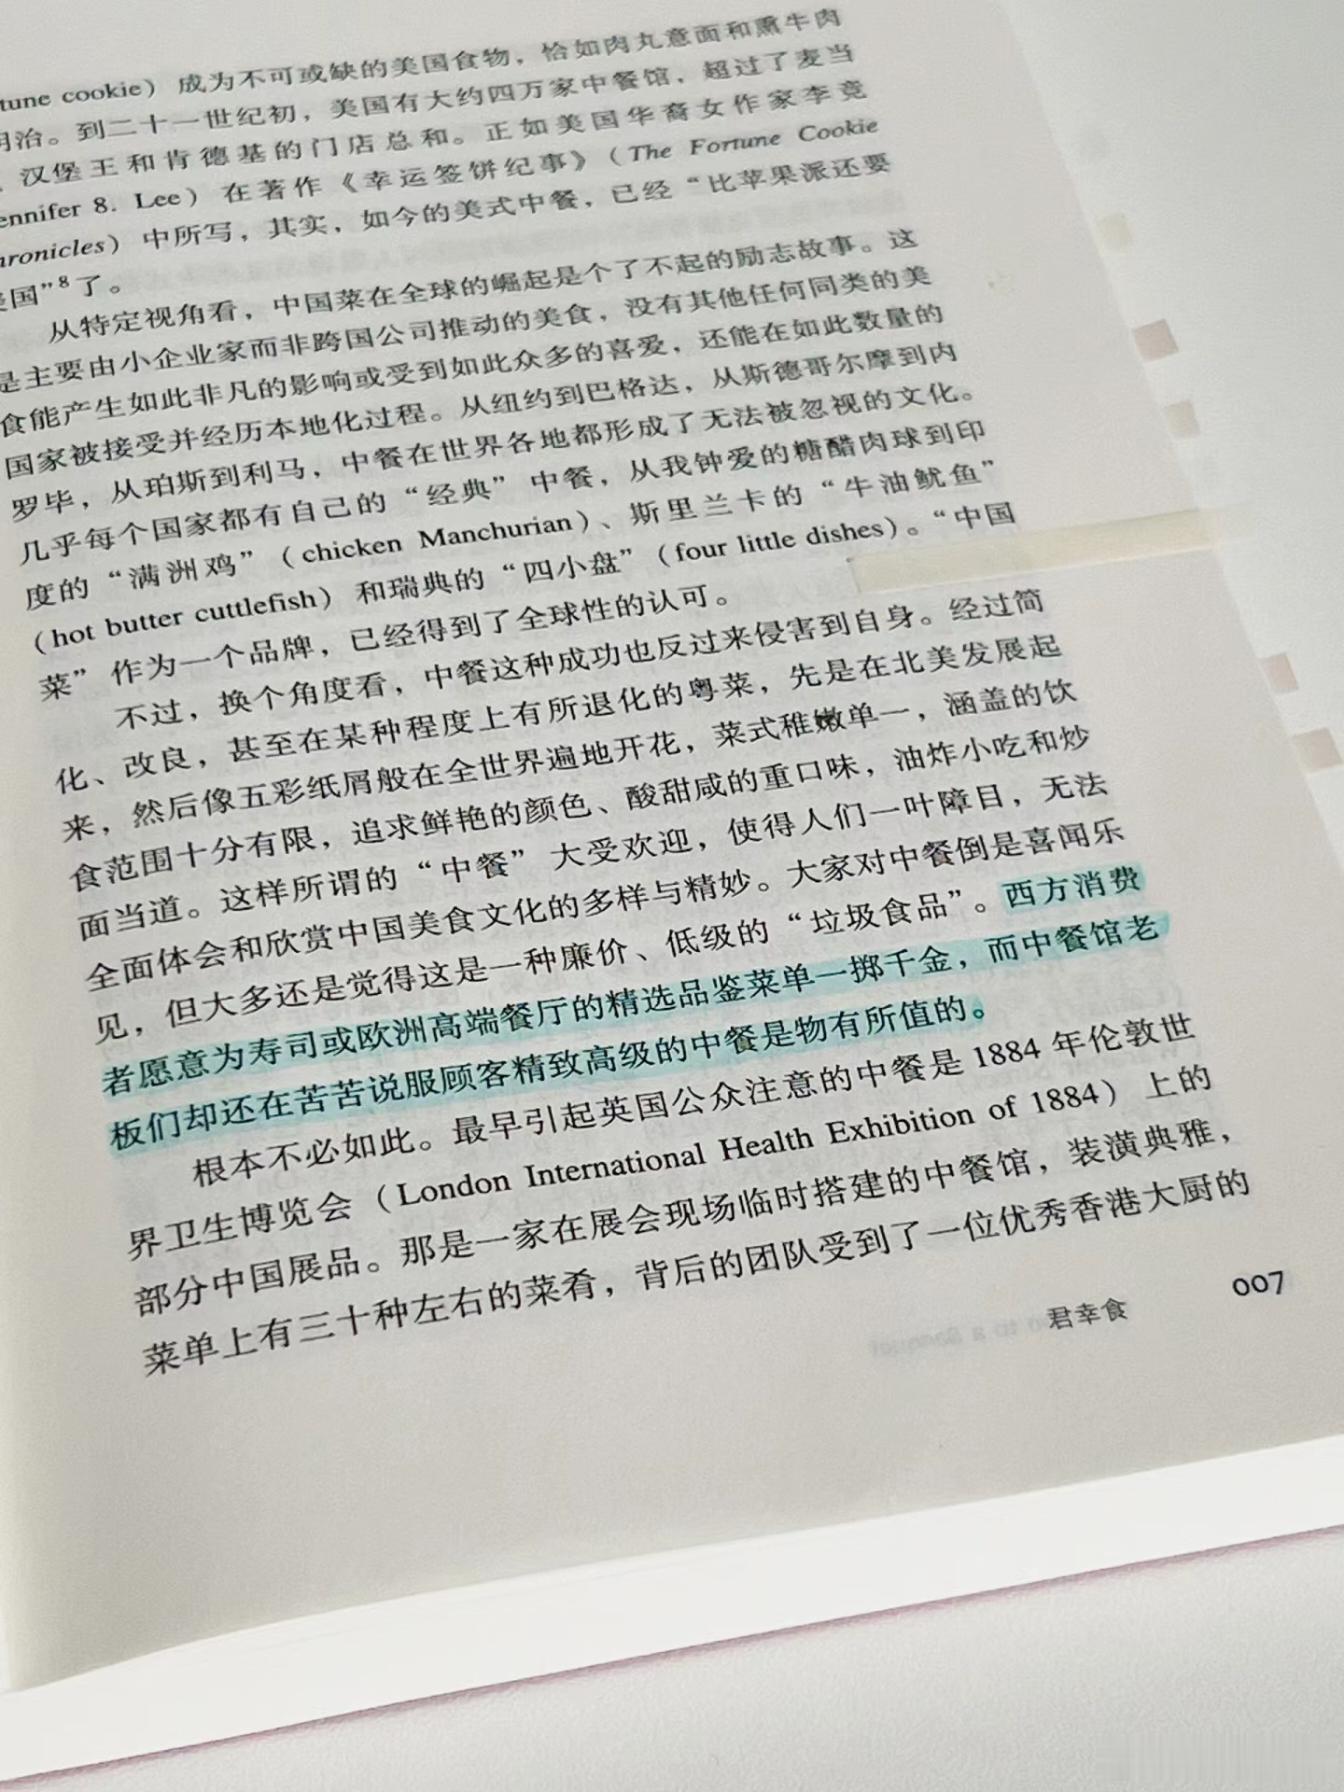 tune cookie）成为不可或缺的美国食物，恰如肉丸意面和熏牛肉
明治。到二十一世纪初，美国有大约四万家中餐馆，超过了麦当
、汉堡王和肯德基的门店总和。正如美国华裔女作家李竞
ennifer 8. Lee）在著作《幸运签饼纪事》（The Fortune Cookie
hronicles）中所写，其实，如今的美式中餐，已经“比苹果派还要
美国”8了。
从特定视角看，中国菜在全球的崛起是个了不起的励志故事。这
是主要由小企业家而非跨国公司推动的美食，没有其他任何同类的美
食能产生如此非凡的影响或受到如此众多的喜爱，还能在如此数量的
国家被接受并经历本地化过程。从纽约到巴格达，从斯德哥尔摩到内
罗毕，从珀斯到利马，中餐在世界各地都形成了无法被忽视的文化。
几乎每个国家都有自己的“经典”中餐，从我钟爱的糖醋肉球到印
度的“满洲鸡”（chicken Manchurian）、斯里兰卡的“牛油鱿鱼”
（hot butter cuttlefish）和瑞典的“四小盘”（four little dishes）。“中国
菜”作为一个品牌，已经得到了全球性的认可。
不过，换个角度看，中餐这种成功也反过来侵害到自身。经过简
化、改良，甚至在某种程度上有所退化的粤菜，先是在北美发展起
来，然后像五彩纸屑般在全世界遍地开花，菜式稚嫩单一，涵盖的饮
食范围十分有限，追求鲜艳的颜色、酸甜咸的重口味，油炸小吃和炒
面当道。这样所谓的“中餐”大受欢迎，使得人们一叶障目，无法
全面体会和欣赏中国美食文化的多样与精妙。大家对中餐倒是喜闻乐
见，但大多还是觉得这是一种廉价、低级的“垃圾食品”。西方消费
者愿意为寿司或欧洲高端餐厅的精选品鉴菜单一掷千金，而中餐馆老
板们却还在苦苦说服顾客精致高级的中餐是物有所值的。
根本不必如此。最早引起英国公众注意的中餐是 1884 年伦敦世
界卫生博览会（London International Health Exhibition of 1884）上的
部分中国展品。那是一家在展会现场临时搭建的中餐馆，装潢典雅，
菜单上有三十种左右的菜肴，背后的团队受到了一位优秀香港大厨的
君幸食 007